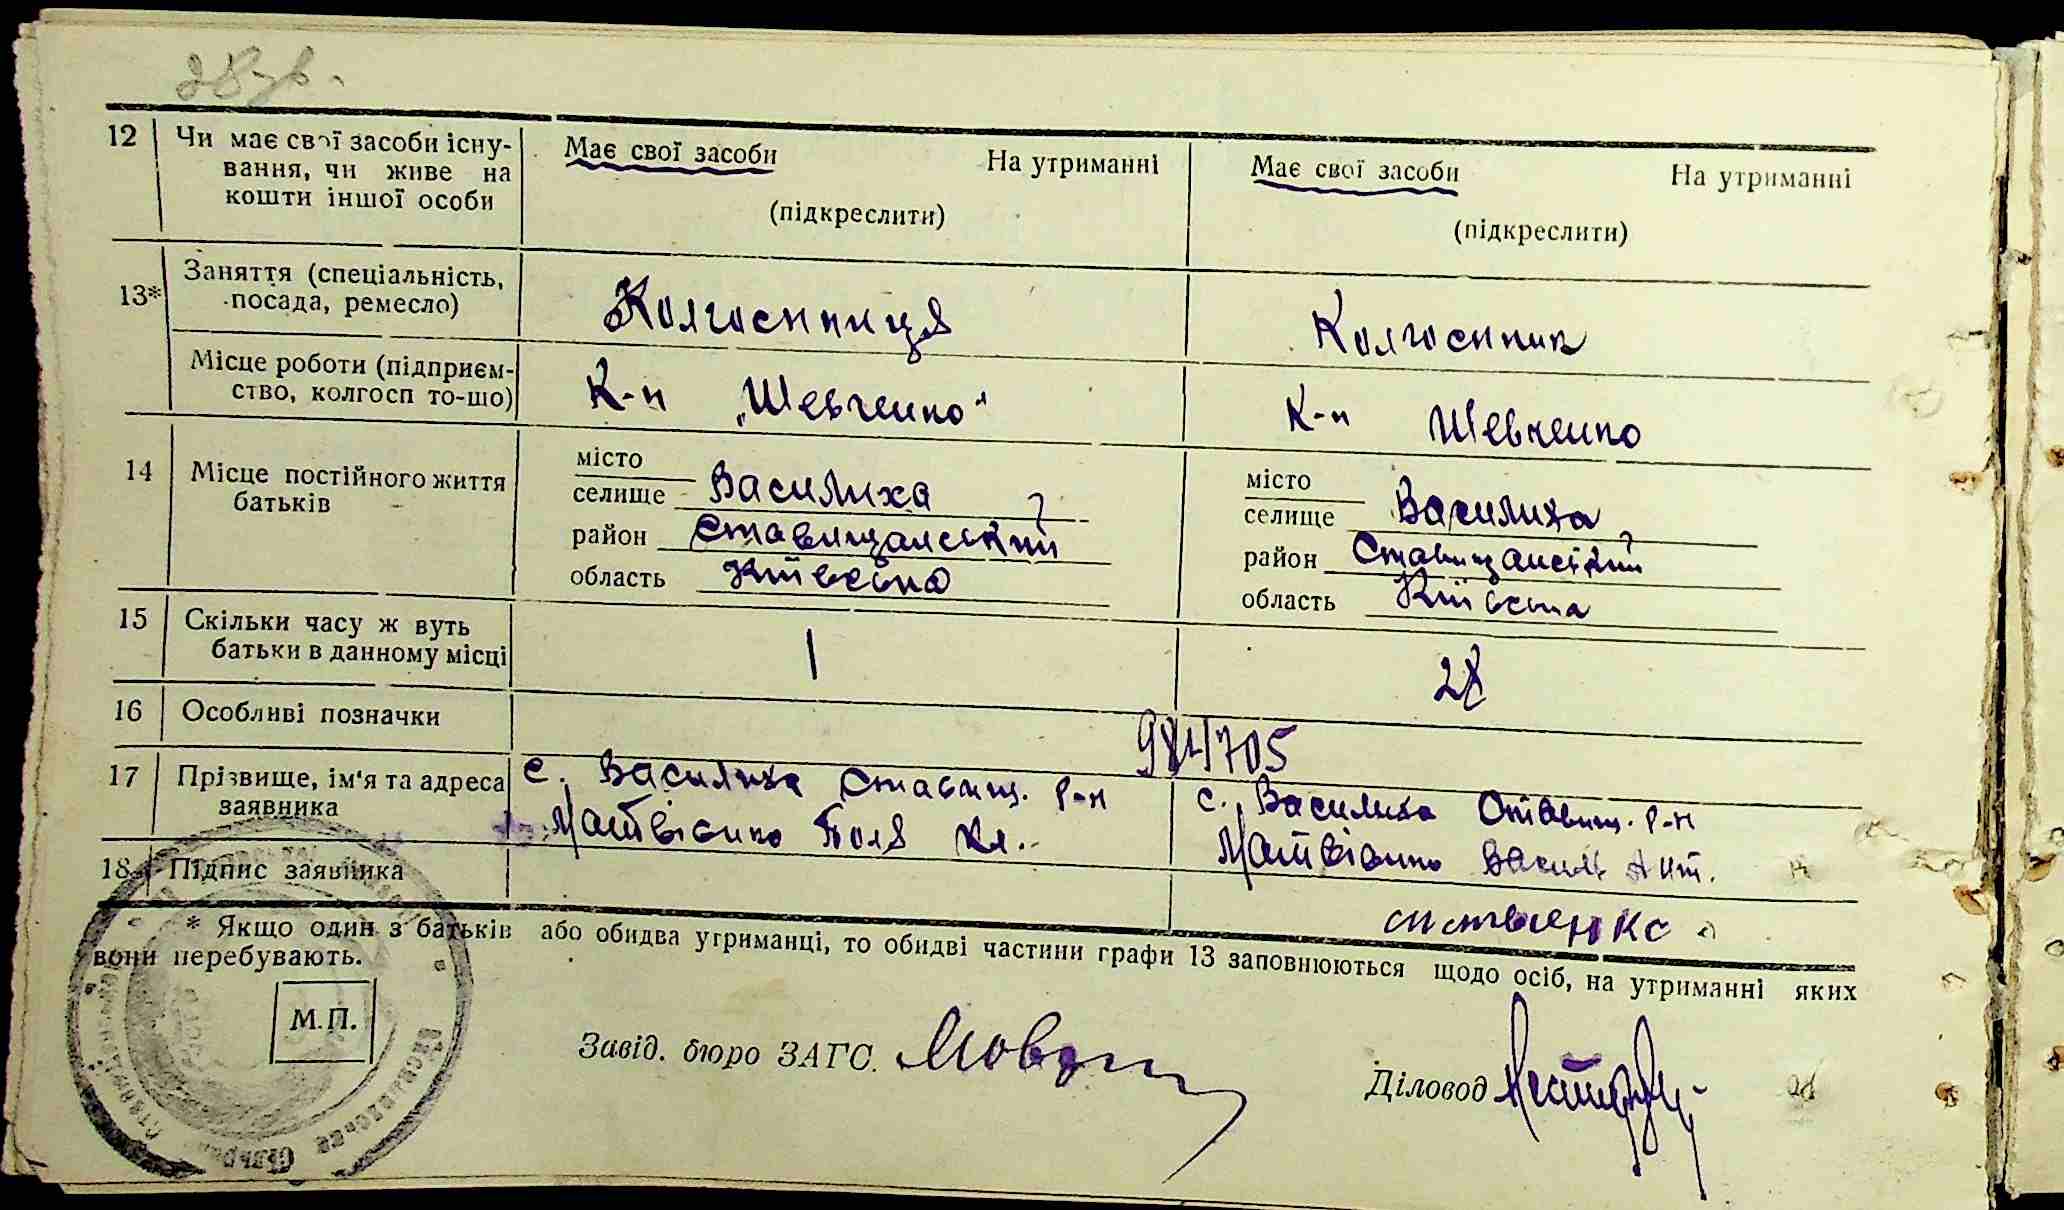 28 зв.
12 Чи має свої засоби існу- Має свої засоби На утриманні Має свої засоби На утриманні
вання, чи живе на
кошти іншої особи (підкреслити) (підкреслити)
13* Заняття (спеціальність,
посада, ремесло) Колгоспниця Колгоспник
Місце роботи (підприєм-
ство, колгосп то-що) К-п „Шевченко" К-п Шевченко
14 Місце постійного життя
батьків
місто місто
селище Василиха селище Василиха
район Ставищанський район Ставищанський
область Київська область Київська
15 Скільки часу ж вуть
батьки в данному місці 1 28
16 Особливі позначки
984705
17 Прізвище, ім'я та адреса с. Василиха Ставищ. р-н с. Василиха Ставищ. р-н
заявника Матвієнко Поля Матвієнко Василь Ант.
18 Підпис заявника
* Якщо один з батьків або обидва утриманці, то обидві частини графи 13 заповнюються щодо осіб, на утриманні яких
вони перебувають.
М.П.
Завід. бюро ЗАГС.
Діловод